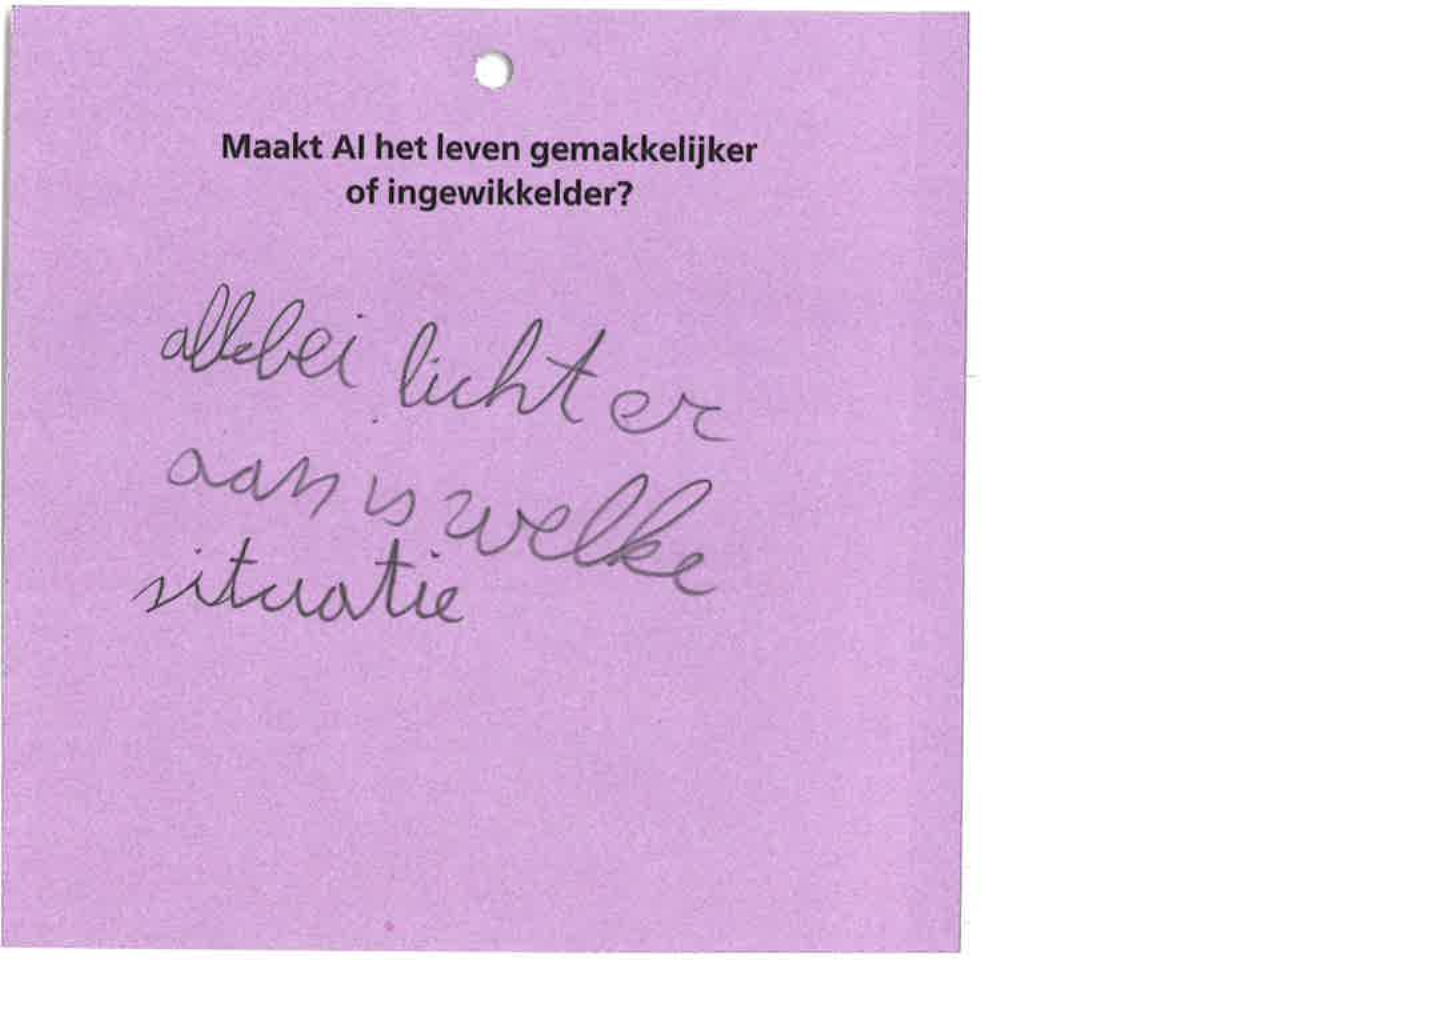 Maakt AI het leven gemakkelijker
of ingewikkelder?
allebei licht er
aan is welke
situatie